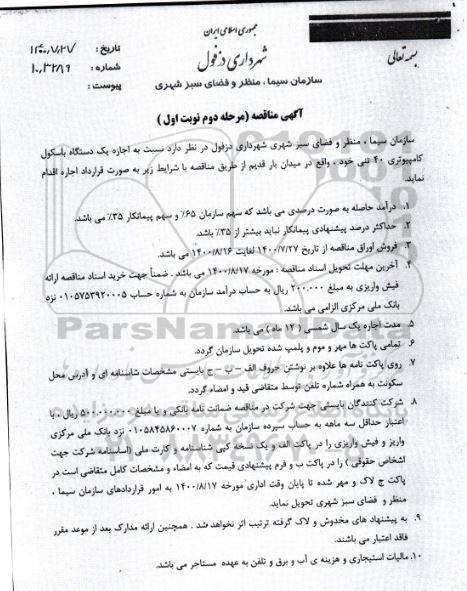 جمهوری اسلامی ایران
شهرداری دزفول
سازمان سیما ، منظر و فضای سبز شهری
بسمه تعالی
تاریخ : ۱۴۰۰/۷/۲۷
شماره : ۱۰,۳۲۸۹
پیوست :
آگهی مناقصه (مرحله دوم نوبت اول )
سازمان سیما ، منظر و فضای سبز شهری شهرداری دزفول در نظر دارد نسبت به اجاره یک دستگاه باسکول
کامپیوتری ۴۰ تنی خود ، واقع در میدان بار قدیم از طریق مناقصه با شرایط زیر به صورت قرارداد اجاره اقدام
نماید.
۱. درآمد حاصله به صورت درصدی می باشد که سهم سازمان ۶۵٪ و سهم پیمانکار ۳۵٪ می باشد.
۲. حداکثر درصد پیشنهادی پیمانکار نباید بیشتر از ۳۵٪ باشد.
۳. فروش اوراق مناقصه از تاریخ ۱۴۰۰/۷/۲۷ لغایت ۱۴۰۰/۸/۱۶ می باشد.
۴. آخرین مهلت تحویل اسناد مناقصه : مورخه ۱۴۰۰/۸/۱۷ می باشد . ضمناً جهت خرید اسناد مناقصه ارائه
فیش واریزی به مبلغ ۲۰۰.۰۰۰ ریال به حساب درآمد سازمان به شماره حساب ۰۱۰۵۷۵۳۹۲۰۰۰۵ نزد
بانک ملی مرکزی الزامی می باشد.
۵. مدت اجاره یک سال شمسی ( ۱۲ ماه ) می باشد.
۶. تمامی پاکت ها مهر و موم و پلمپ شده تحویل سازمان گردد.
۷. روی پاکت نامه ها علاوه بر نوشتن حروف الف – ب – ج بایستی مشخصات شناسنامه ای و آدرس محل
سکونت به همراه شماره تلفن توسط متقاضی قید و امضاء گردد.
۸. شرکت کنندگان بایستی جهت شرکت در مناقصه ضمانت نامه بانکی و یا مبلغ ۵۰۰.۰۰۰.۰۰۰ ریال ، با
اعتبار حداقل سه ماهه به حساب سپرده سازمان به شماره ۰۱۰۵۸۴۵۸۶۰۰۰۷ نزد بانک ملی مرکزی
واریز و فیش واریزی را در پاکت الف و یک نسخه کپی شناسنامه و کارت ملی (اساسنامه شرکت جهت
اشخاص حقوقی ) را در پاکت ب و فرم پیشنهادی قیمت که به امضاء و مشخصات کامل متقاضی است در
پاکت ج لاک و مهر شده تا پایان وقت اداری مورخه ۱۴۰۰/۸/۱۷ به امور قراردادهای سازمان سیما ،
منظر و فضای سبز شهری تحویل نماید.
۹. به پیشنهاد های مخدوش و لاک گرفته ترتیب اثر نخواهد شد . همچنین ارائه مدارک بعد از موعد مقرر
فاقد اعتبار می باشند.
۱۰. مالیات استیجاری و هزینه ی آب و برق و تلفن به عهده مستاجر می باشد.
ParsNamadData